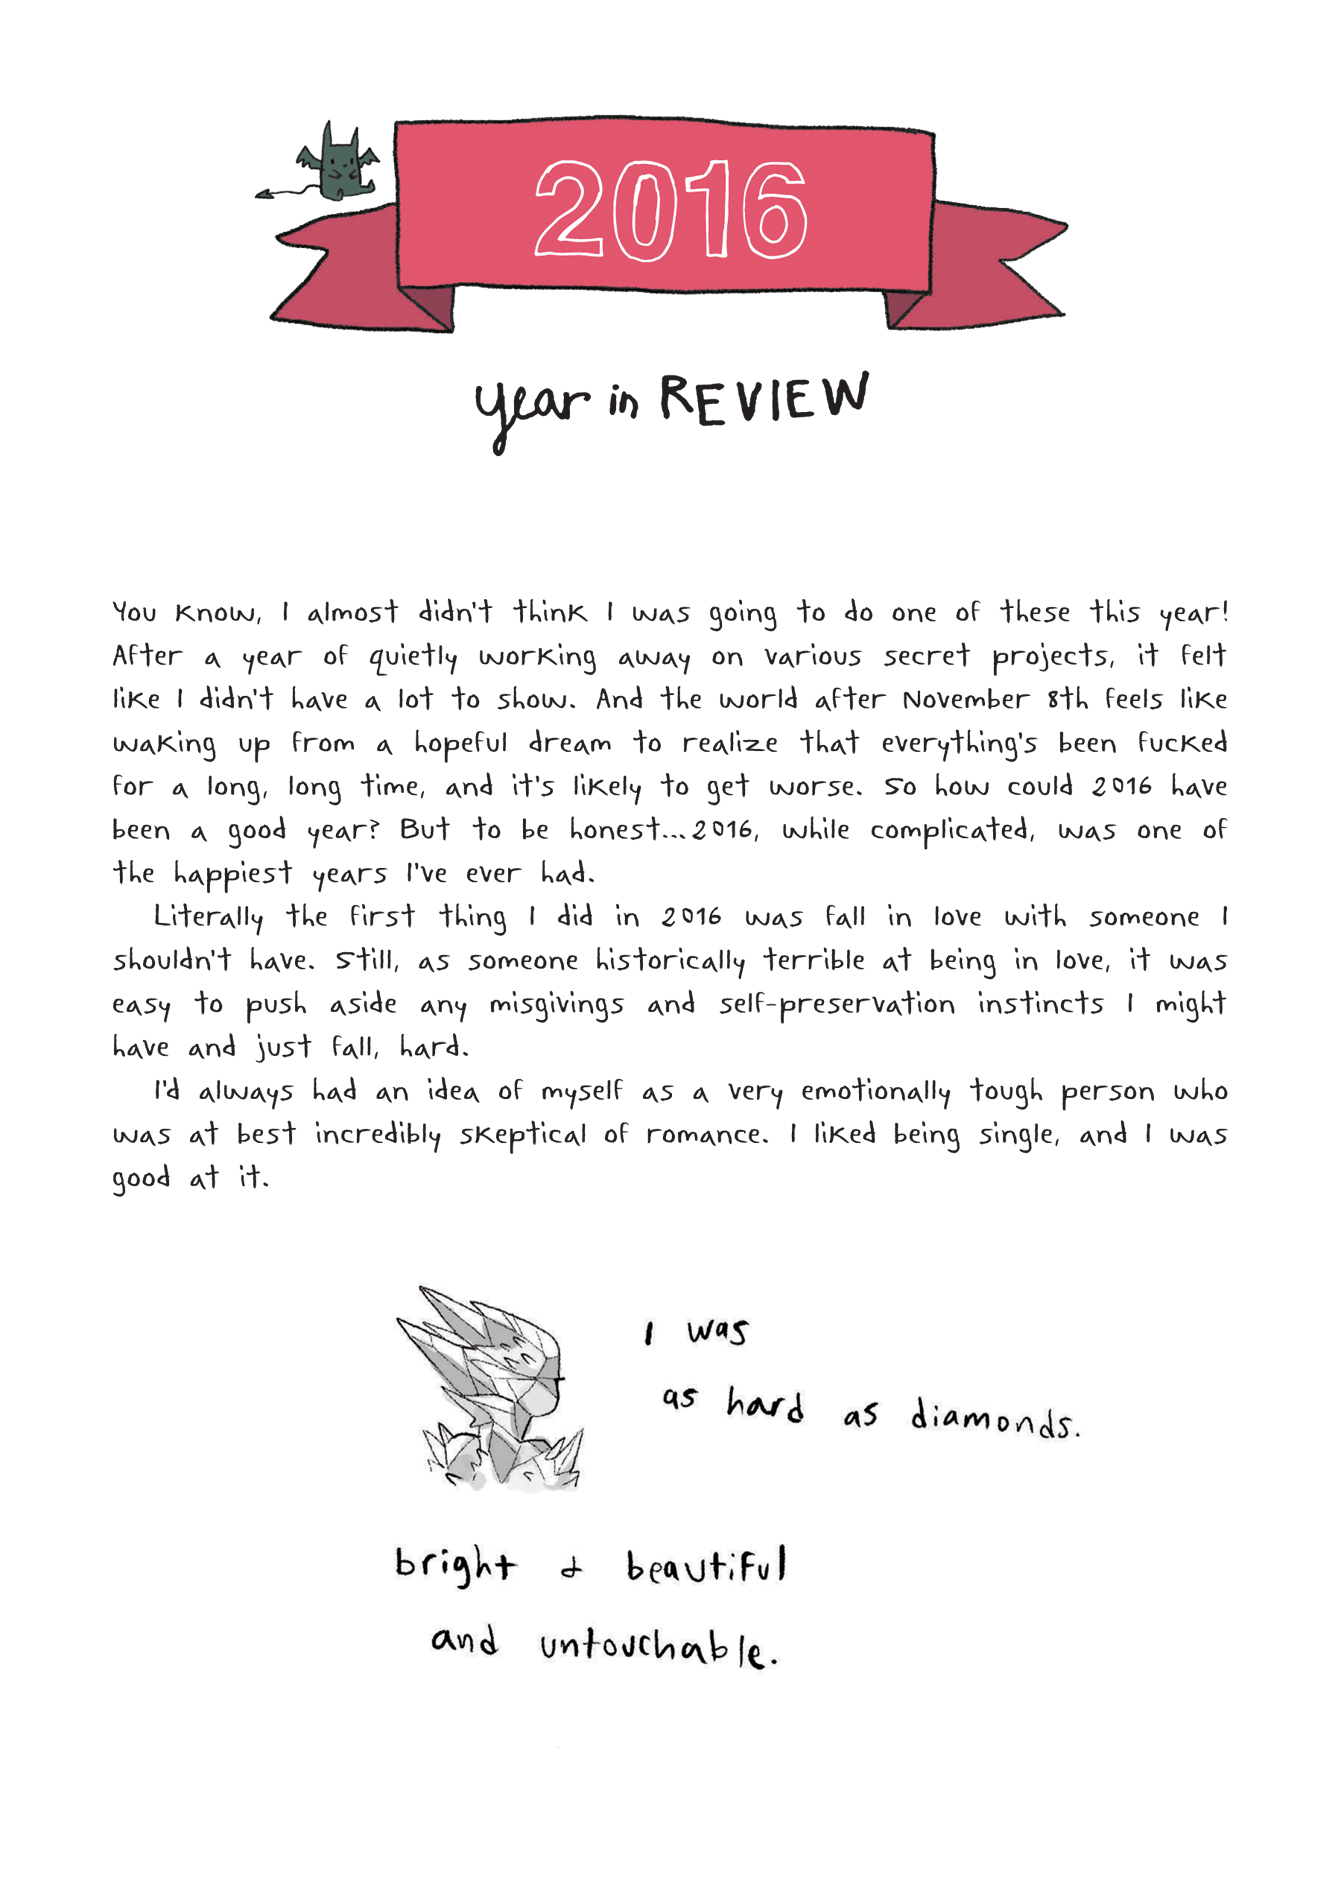 2016
year in REVIEW
You know, I almost didn't think I was going to do one of these this year!
After a year of quietly working away on various secret projects, it felt
like I didn't have a lot to show. And the world after November 8th feels like
waking up from a hopeful dream to realize that everything's been fucked
for a long, long time, and it's likely to get worse. So how could 2016 have
been a good year? But to be honest...2016, while complicated, was one of
the happiest years I've ever had.
Literally the first thing I did in 2016 was fall in love with someone I
shouldn't have. Still, as someone historically terrible at being in love, it was
easy to push aside any misgivings and self-preservation instincts I might
have and just fall, hard.
I'd always had an idea of myself as a very emotionally tough person who
was at best incredibly skeptical of romance. I liked being single, and I was
good at it.
I was
as hard as diamonds.
bright & beautiful
and untouchable.